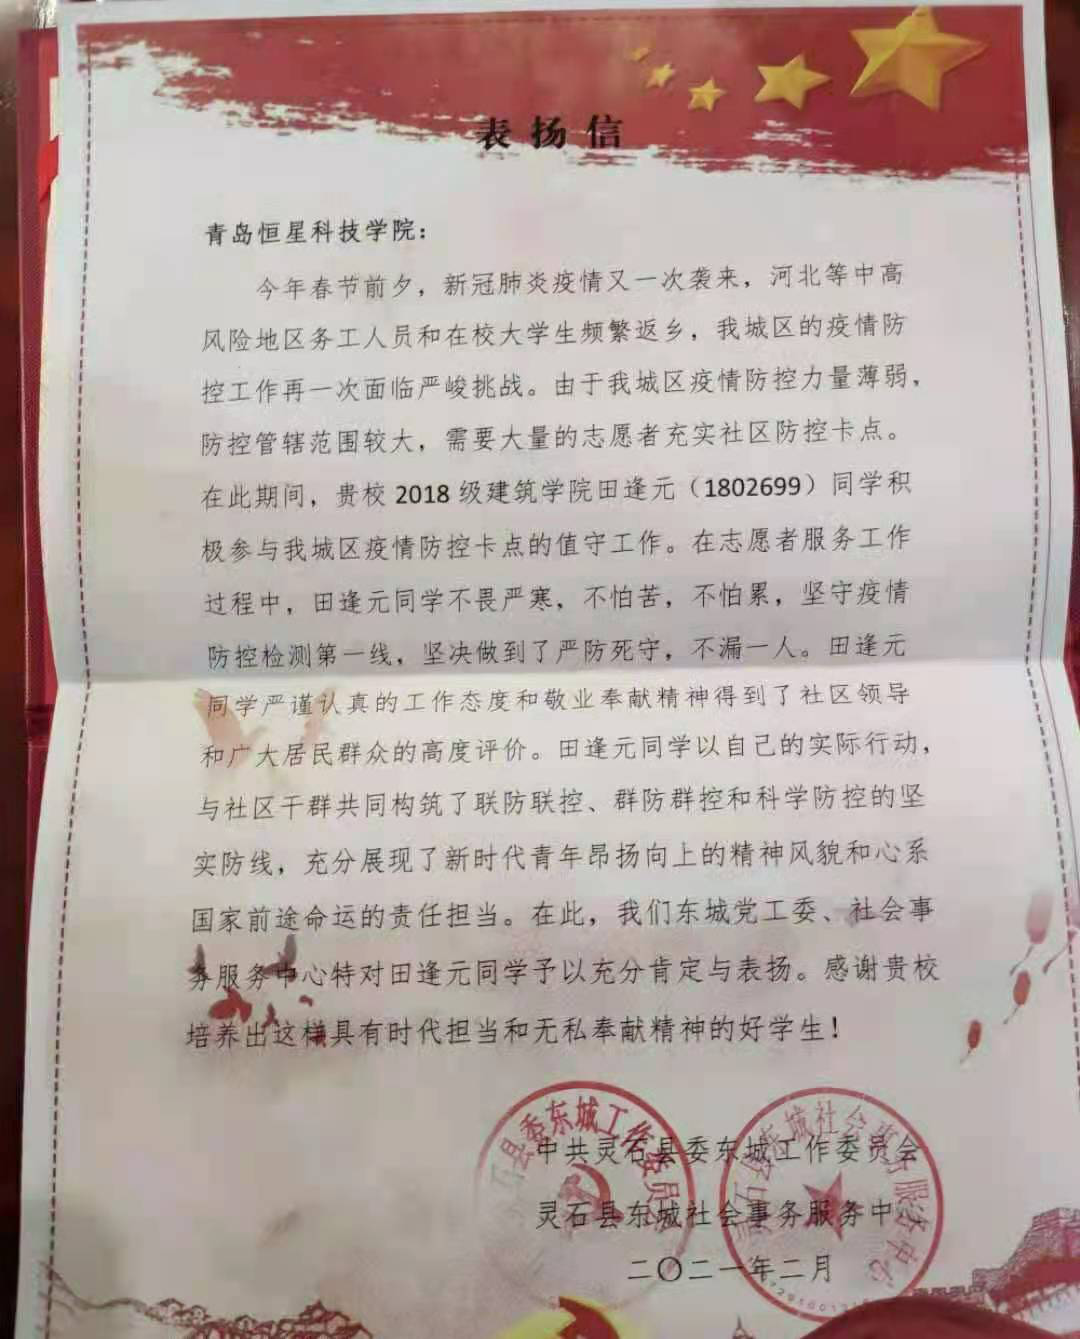 表扬信
青岛恒星科技学院：
今年春节前夕，新冠肺炎疫情又一次袭来，河北等中高
风险地区务工人员和在校大学生频繁返乡，我城区的疫情防
控工作再一次面临严峻挑战。由于我城区疫情防控力量薄弱，
防控管辖范围较大，需要大量的志愿者充实社区防控卡点。
在此期间，贵校 2018 级建筑学院田逢元（1802699）同学积
极参与我城区疫情防控卡点的值守工作。在志愿者服务工作
过程中，田逢元同学不畏严寒，不怕苦，不怕累，坚守疫情
防控检测第一线，坚决做到了严防死守，不漏一人。田逢元
同学严谨认真的工作态度和敬业奉献精神得到了社区领导
和广大居民群众的高度评价。田逢元同学以自己的实际行动，
与社区干群共同构筑了联防联控、群防群控和科学防控的坚
实防线，充分展现了新时代青年昂扬向上的精神风貌和心系
国家前途命运的责任担当。在此，我们东城党工委、社会事
务服务中心特对田逢元同学予以充分肯定与表扬。感谢贵校
培养出这样具有时代担当和无私奉献精神的好学生！
中共灵石县委东城工作委员会
灵石县东城社会事务服务中心
二〇二一年二月
石县委东城工作委员
灵石县东城社会事务服务中心